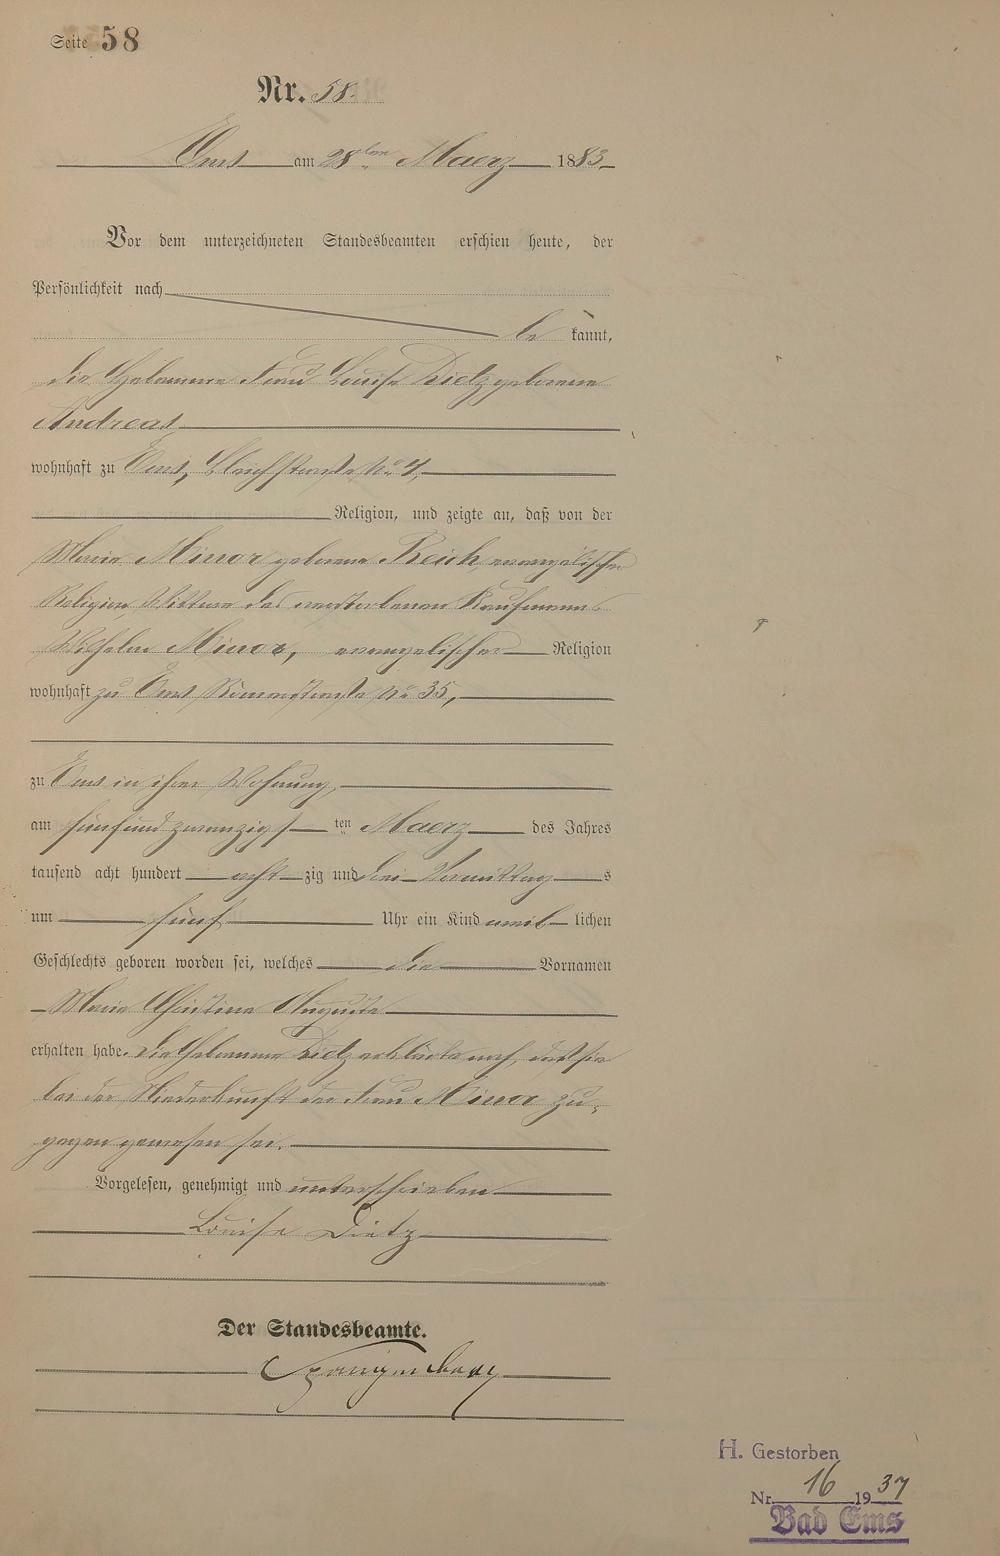 Seite 58
Nr. 58.
Ems am 28ten Maerz 1883
Vor dem unterzeichneten Standesbeamten erschien heute, der
Persönlichkeit nach
be kannt,
die Hebamme Frau Louise Dietz geborene
Andreas
wohnhaft zu Ems, Bleichstraße No 7,
Religion, und zeigte an, daß von der
Marie Minor geborene Reich, evangelischer
Religion, Wittwe des verstorbenen Kaufmanns
Wilhelm Minor, evangelischer Religion
wohnhaft zu Ems Römerstraße No 35,
zu Ems in ihrer Wohnung,
am fünfundzwanzigsten ten Maerz des Jahres
tausend acht hundert acht zig und drei Vormittag s
um fünf Uhr ein Kind weib lichen
Geschlechts geboren worden sei, welches die Vornamen
Marie Christine Auguste
erhalten habe. Die Hebamme Dietz erklärte noch, daß sie
bei der Niederkunft der Frau Minor zu-
gegen gewesen sei.
Vorgelesen, genehmigt und unterschrieben
Louise Dietz
Der Standesbeamte.
H. Gestorben
Nr. 16 1937
Bad Ems